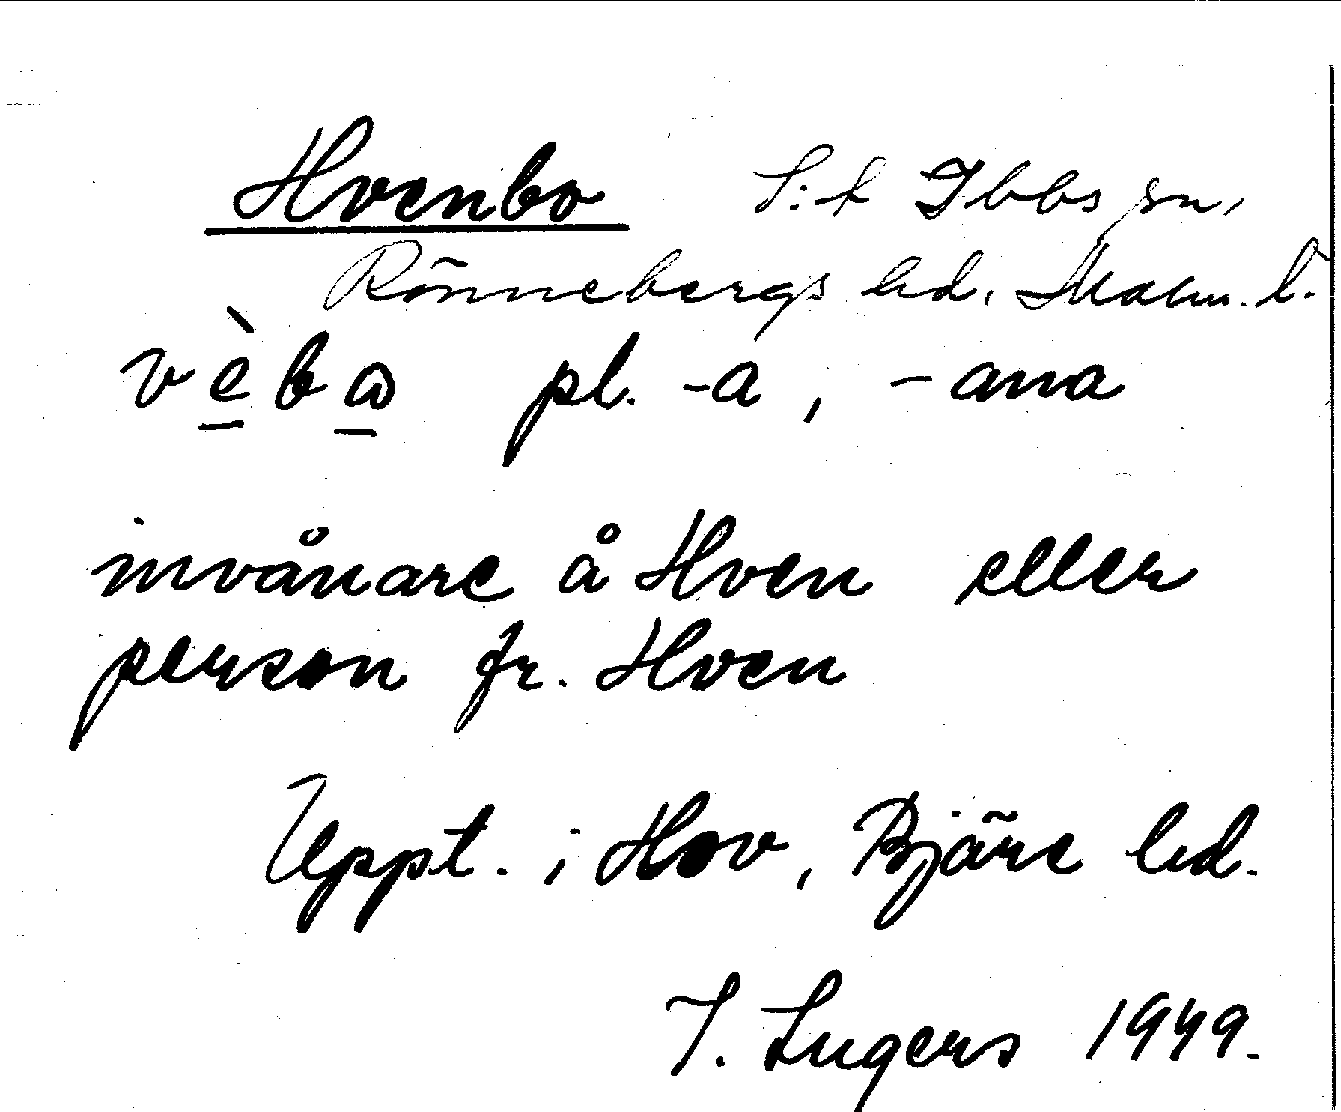 Hvenbo S:t Ibbs sn,
Rönnebergs hd. Malm. l.
vèba pl. -a, -ana
invånare å Hven eller
person fr. Hven
Uppt. i Hov, Bjäre hd.
I. Lugers 1949.